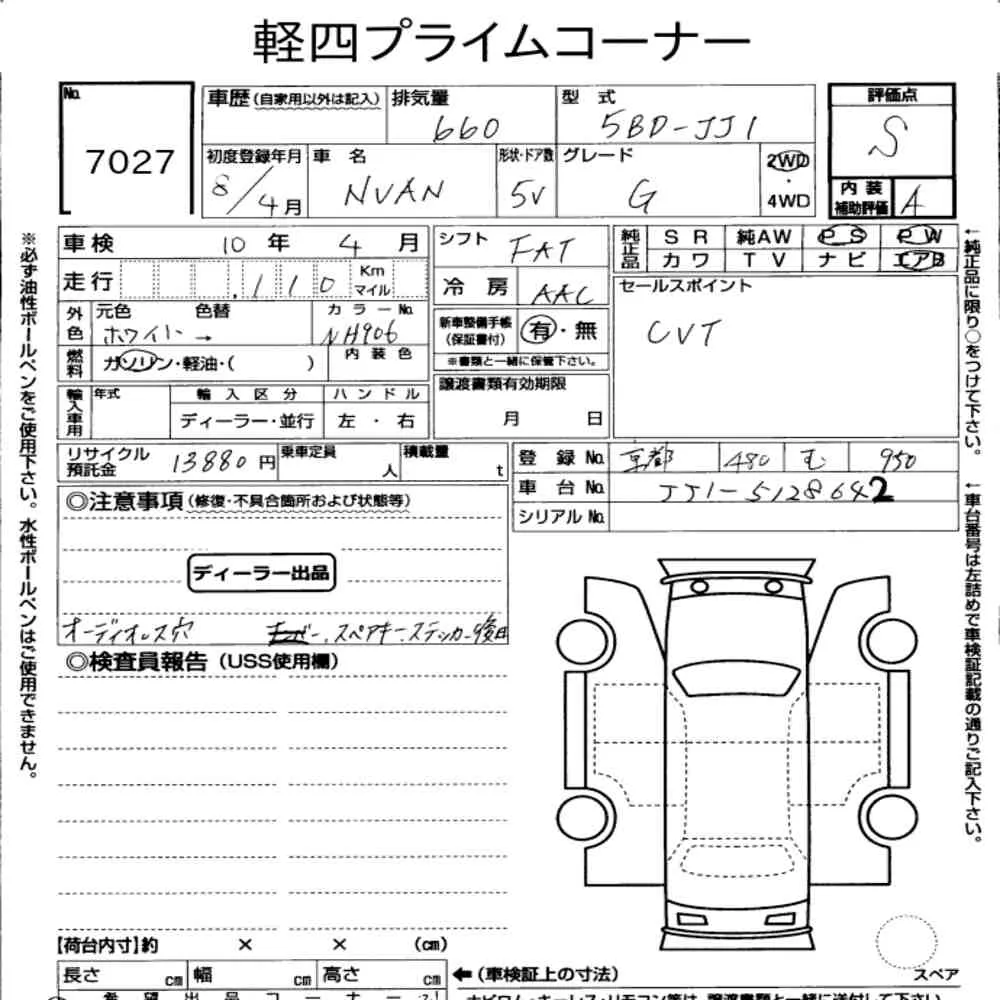 軽四プライムコーナー
No. 7027
車歴(自家用以外は記入) 排気量 660 型 式 5BD-JJ1 評価点 S
初度登録年月 8/4月 車 名 NVAN 形状・ドア数 5V グレード G 2WD・4WD 内装補助評価 A
車検 10年 4月 シフト FAT 純正品 SR 純AW PS PW
カワ TV ナビ エアB
走行 110 Km マイル 冷房 AAC セールスポイント
CVT
外色 元色 ホワイト 色替 → カラーNo. NH906 新車整備手帳(保証書付) 有・無
※書類と一緒に保管下さい。
燃料 ガソリン・軽油・( ) 内装色
譲渡書類有効期限 月 日
輸入車用 年式 輸入区分 ディーラー・並行 ハンドル 左・右
リサイクル預託金 13880円 乗車定員 人 積載量 t 登録No. 京都 480 む 950
車台No. JJ1-5128642
シリアルNo.
◎注意事項(修復・不具合箇所および状態等)
ディーラー出品
オーディオレス穴 スペアキー、ステッカー後日
◎検査員報告(USS使用欄)
【荷台内寸】約 × × (cm)
長さ cm 幅 cm 高さ cm ←(車検証上の寸法)
スペア
希望出品コーナー
※必ず油性ボールペンをご使用下さい。水性ボールペンはご使用できません。
←純正品に限り○をつけて下さい。
←車台番号は左詰めで車検証記載の通りご記入下さい。